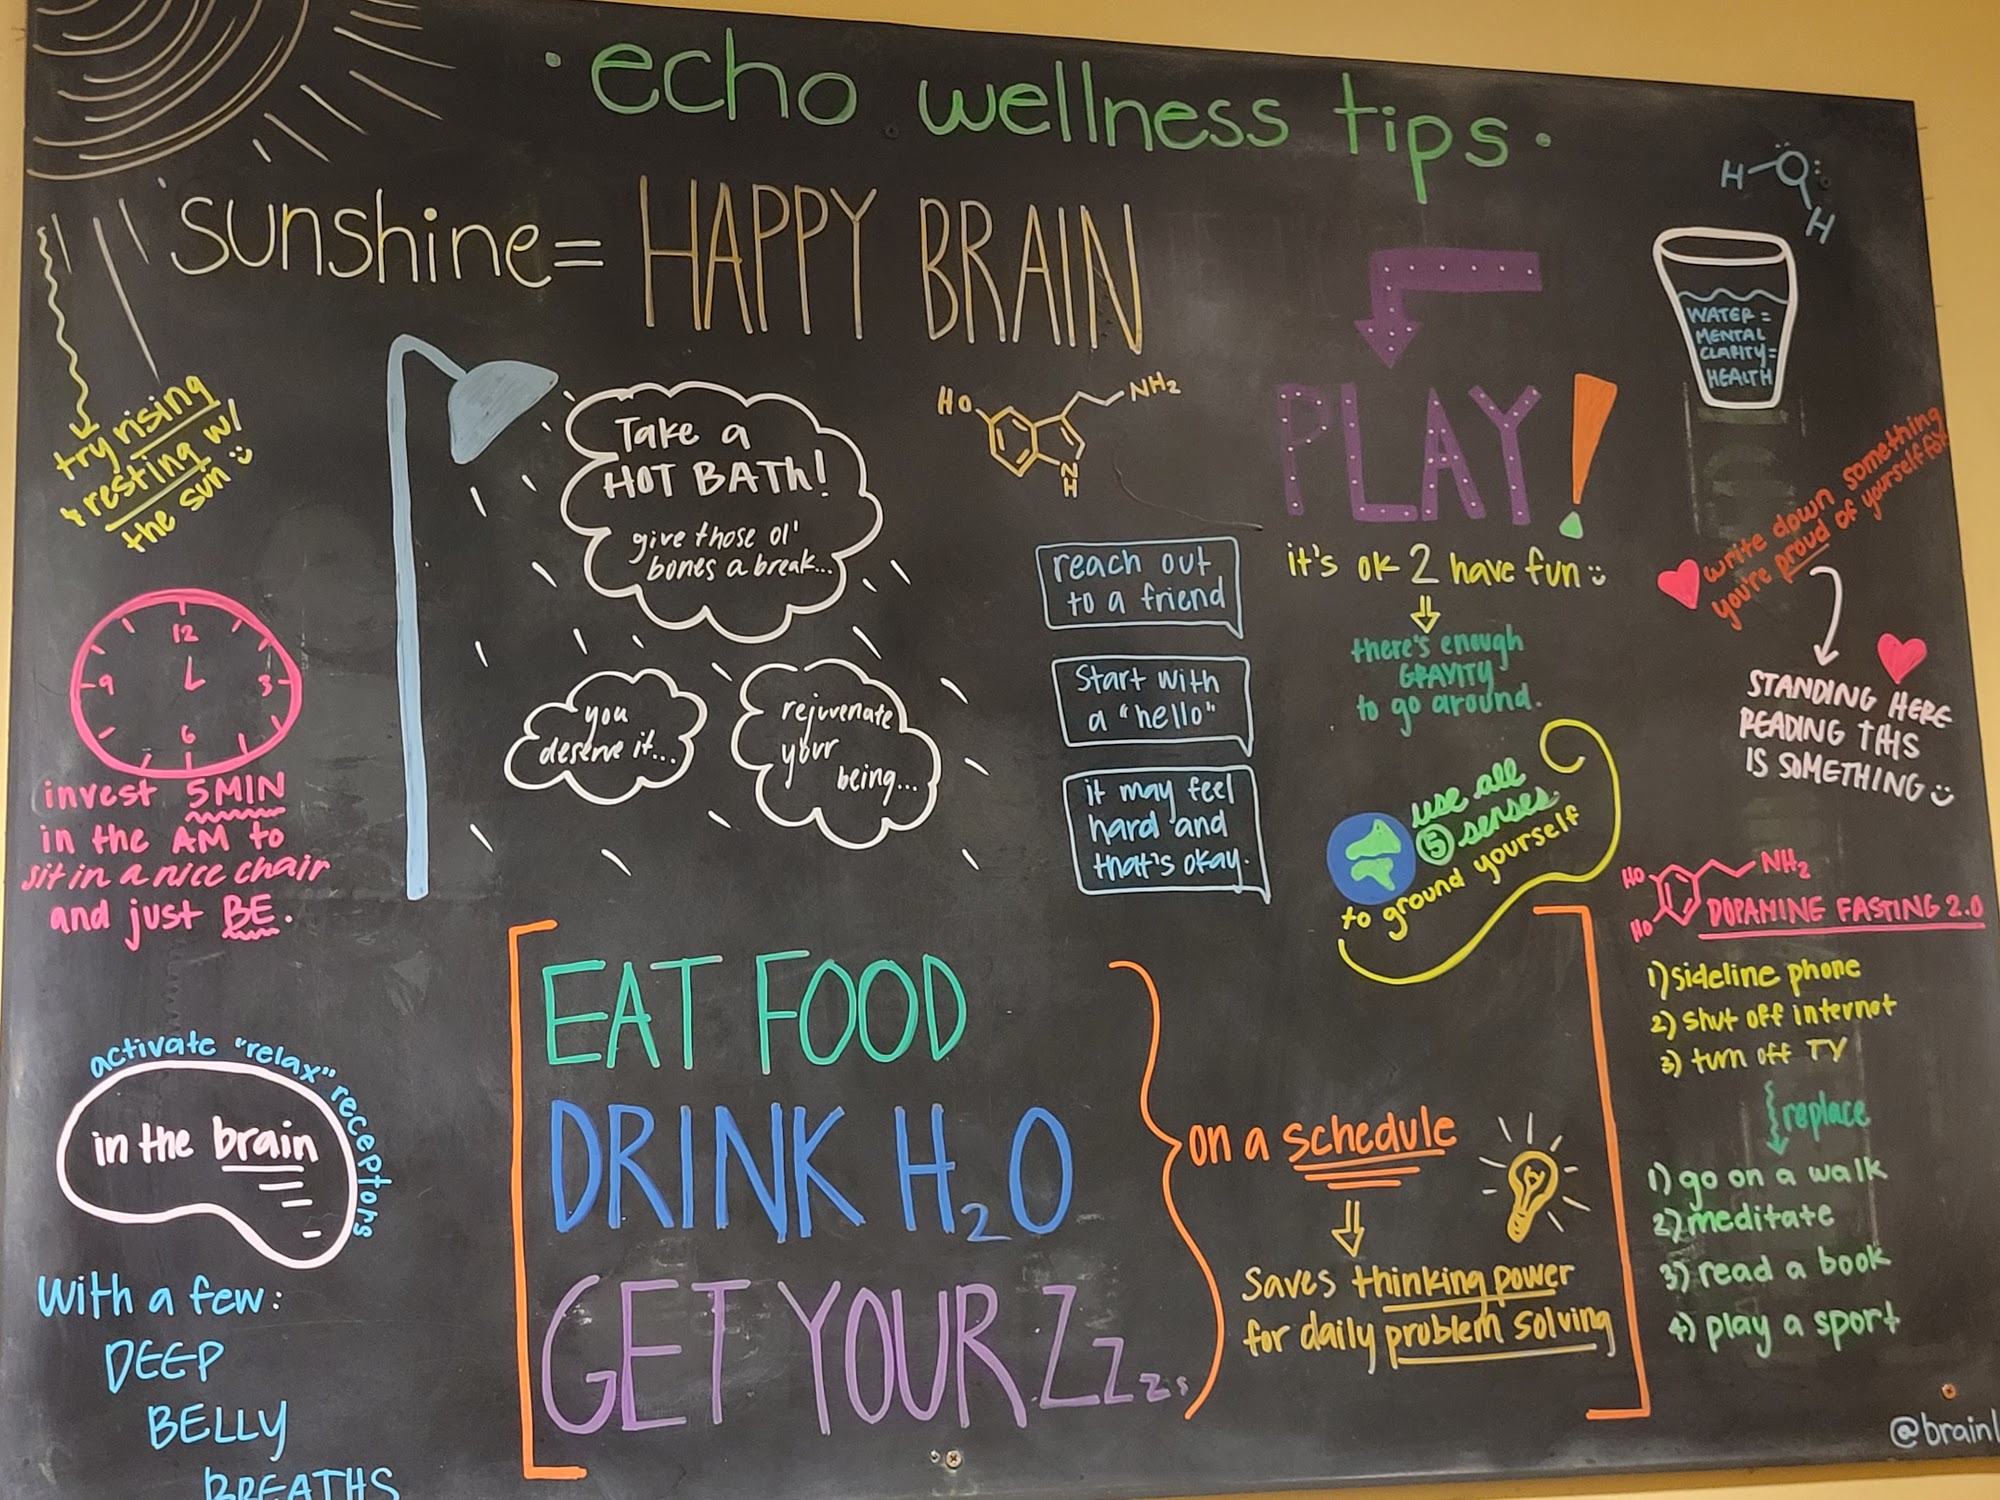 · echo wellness tips ·
sunshine = HAPPY BRAIN
try rising
& resting w/
the sun
12
9
3
6
invest 5MIN
in the AM to
sit in a nice chair
and just BE.
activate "relax" receptors
in the brain
with a few:
DEEP
BELLY
BREATHS
Take a
HOT BATH!
give those ol'
bones a break...
you
deserve it...
rejuvenate
your
being...
HO
NH2
N
H
reach out
to a friend
Start with
a "hello"
it may feel
hard and
that's okay.
PLAY!
it's ok 2 have fun
there's enough
GRAVITY
to go around.
use all
5 senses
to ground yourself
EAT FOOD
DRINK H2O
GET YOUR Zzzzs
on a schedule
saves thinking power
for daily problem solving
H O
H
WATER =
MENTAL
CLARITY =
HEALTH
write down something
you're proud of yourself for
STANDING HERE
READING THIS
IS SOMETHING
HO
HO
NH2
DOPAMINE FASTING 2.0
1) sideline phone
2) shut off internet
3) turn off TV
replace
1) go on a walk
2) meditate
3) read a book
4) play a sport